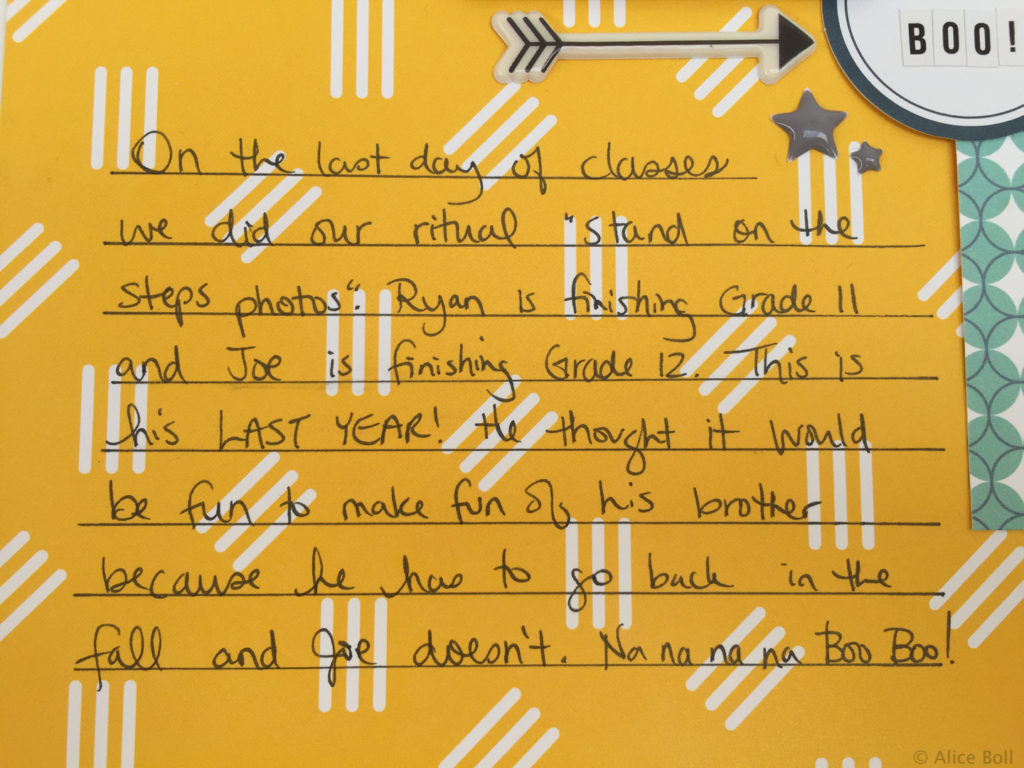 BOO!
On the last day of classes
we did our ritual "stand on the
steps photos". Ryan is finishing Grade 11
and Joe is finishing Grade 12. This is
his LAST YEAR! He thought it would
be fun to make fun of his brother
because he has to go back in the
fall and Joe doesn't. Na na na na Boo Boo!
© Alice Boll